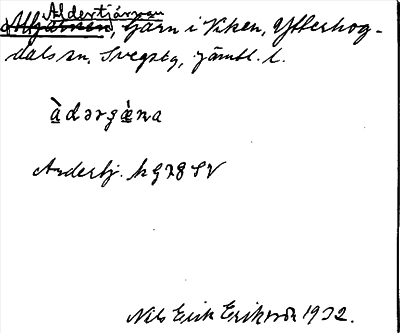 Aldertjärnen
Allgjärnen, tjärn i Viken, Ytterhog-
dals sn, Svegs tg, Jämtl. l.
àdərgæ̀na
Andertj. hg78 SV
Nils Erik Eriksson 1932.